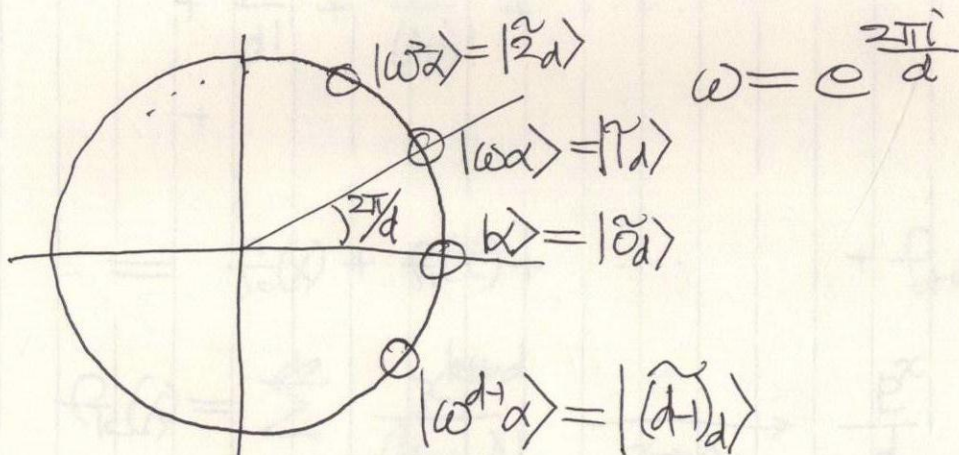 |ω²α⟩ = |2̃_d⟩
ω = e^{2πi/d}
|ωα⟩ = |1̃_d⟩
2π/d
|α⟩ = |0̃_d⟩
|ω^{d-1}α⟩ = |(d-1)̃_d⟩